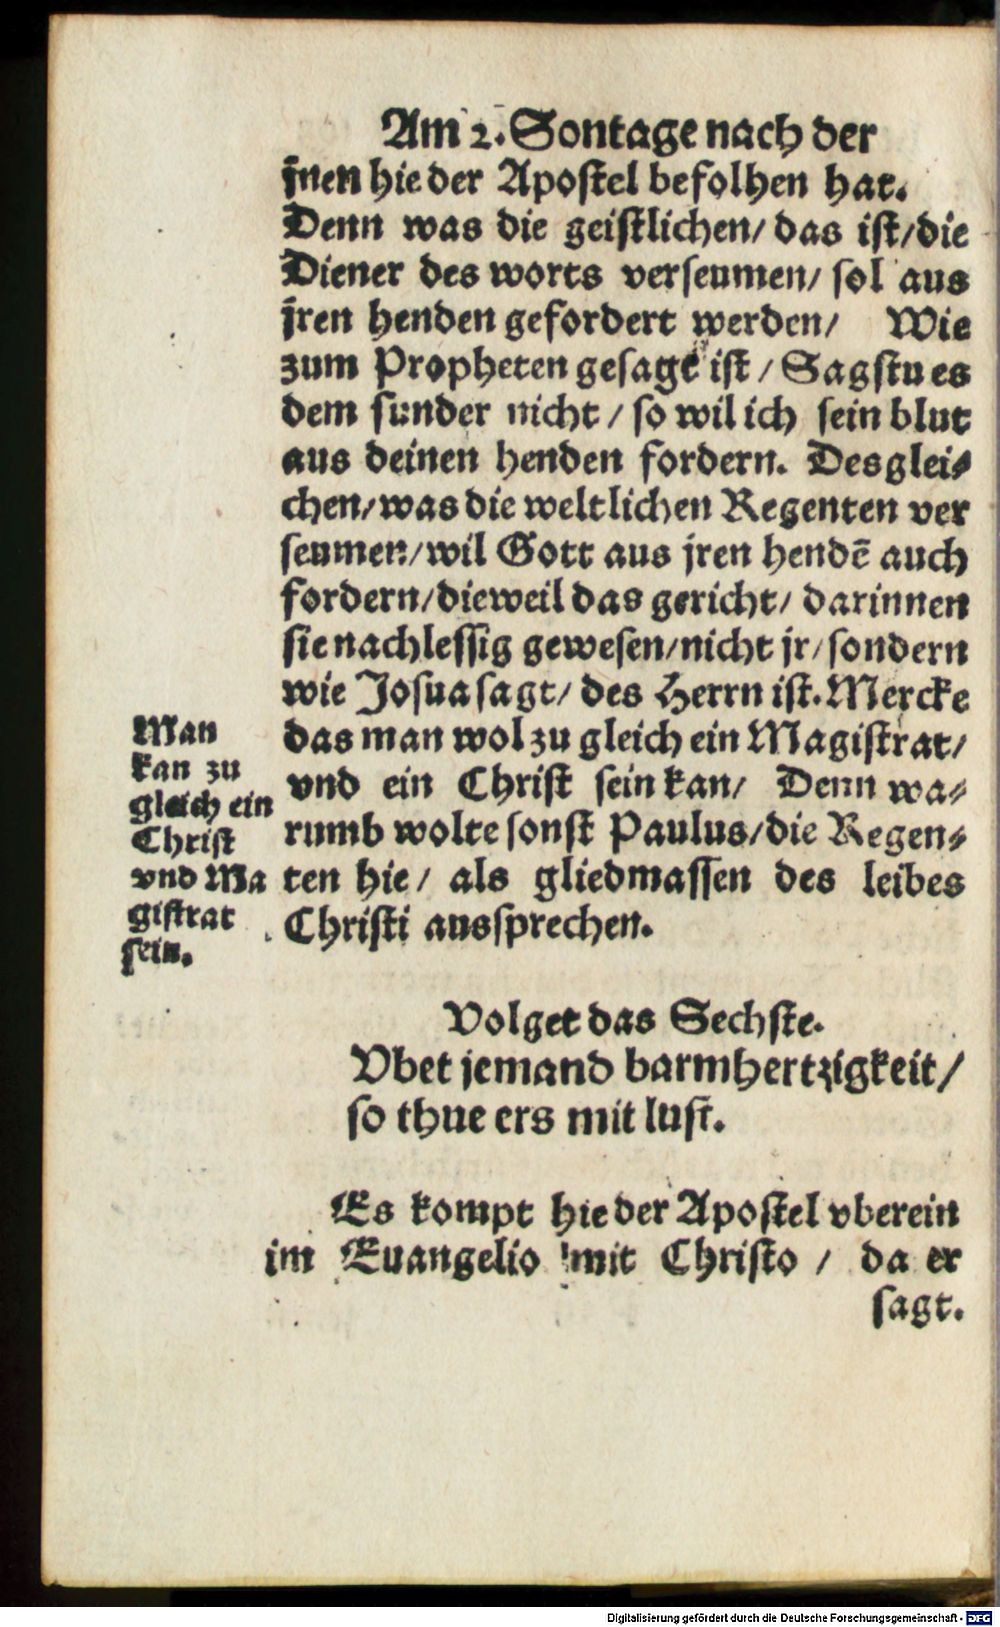 Am 2. Sontage nach der
jnen hie der Apostel befolhen hat.
Denn was die geistlichen/ das ist/die
Diener des worts verseumen/ sol aus
jren henden gefordert werden/ Wie
zum Propheten gesagt ist / Sagstu es
dem sunder nicht / so wil ich sein blut
aus deinen henden fordern. Desglei⸗
chen/was die weltlichen Regenten ver
seumen/wil Gott aus jren hendē auch
fordern/dieweil das gericht/ darinnen
sie nachlessig gewesen/nicht jr/sondern
wie Josua sagt/ des Herrn ist. Mercke
das man wol zu gleich ein Magistrat/
vnd ein Christ sein kan/ Denn wa⸗
rumb wolte sonst Paulus/die Regen⸗
ten hie/ als gliedmassen des leibes
Christi aussprechen.
Man
kan zu
gleich ein
Christ
vnd Ma
gistrat
sein.
Volget das Sechste.
Vbet jemand barmhertzigkeit/
so thue ers mit lust.
Es kompt hie der Apostel vberein
im Euangelio mit Christo / da er
sagt.
Digitalisierung gefördert durch die Deutsche Forschungsgemeinschaft - DFG